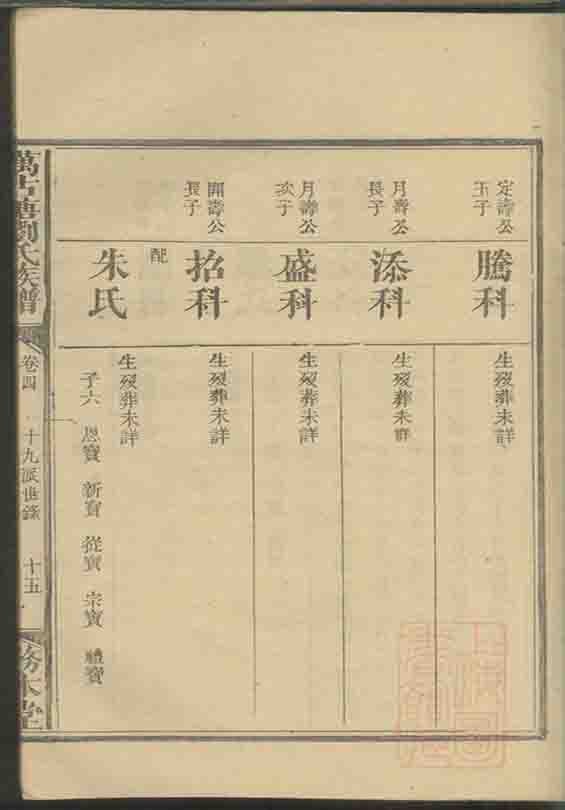 定壽公
玉子
騰科
生歿葬未詳
月壽公
長子
添科
生歿葬未詳
月壽公
次子
盛科
生歿葬未詳
開壽公
長子
招科
生歿葬未詳
配
朱氏
生歿葬未詳
子六 恩寶 新寶 從寶 宗寶 禮寶
萬古塘劉氏族譜
卷四
十九派世錄
十五
務本堂